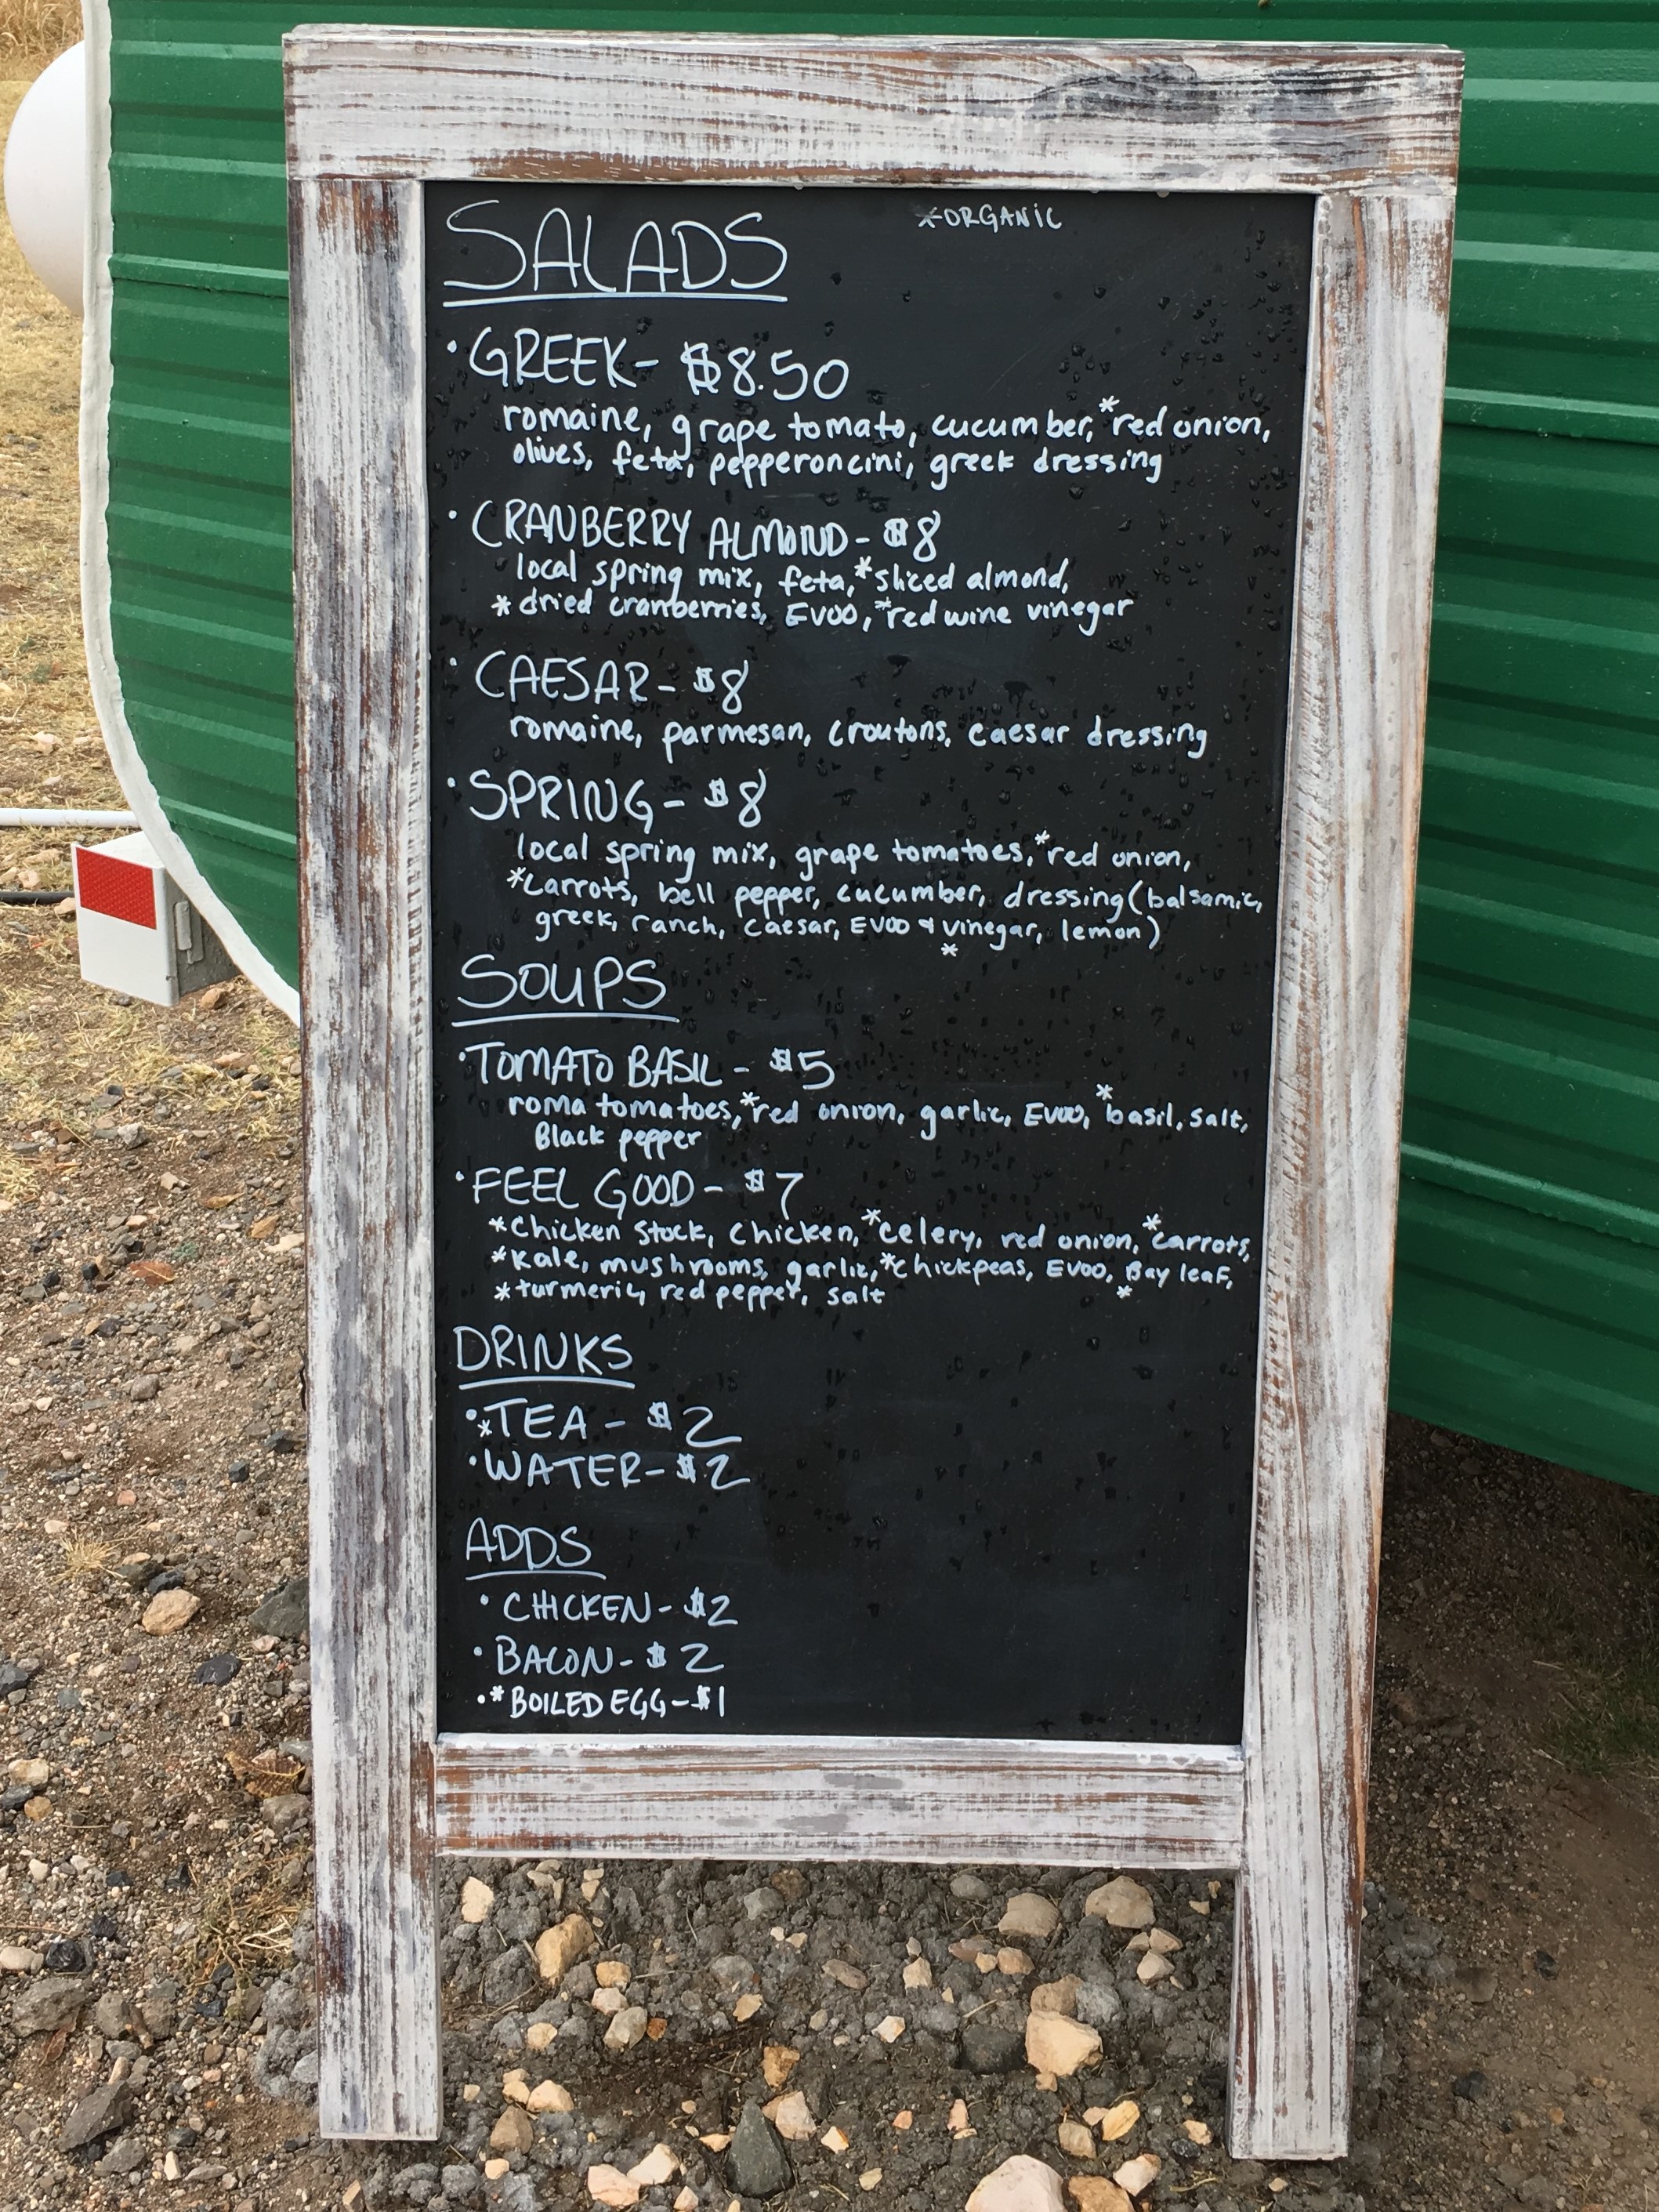 SALADS
*ORGANIC
·GREEK- $8.50
romaine, grape tomato, cucumber, *red onion,
olives, feta, pepperoncini, greek dressing
·CRANBERRY ALMOND- $8
local spring mix, feta, *sliced almond,
*dried cranberries, EVOO, *red wine vinegar
·CAESAR- $8
romaine, parmesan, croutons, caesar dressing
·SPRING- $8
local spring mix, grape tomatoes, *red onion,
*carrots, bell pepper, cucumber, dressing (balsamic,
greek, ranch, caesar, EVOO & *vinegar, lemon)
SOUPS
·TOMATO BASIL- $5
roma tomatoes, *red onion, garlic, EVOO, *basil, salt,
Black pepper
·FEEL GOOD- $7
*Chicken Stock, Chicken, *celery, red onion, *carrots,
*Kale, mushrooms, garlic, *chickpeas, EVOO, *Bay leaf,
*turmeric, red pepper, salt
DRINKS
·*TEA- $2
·WATER- $2
ADDS
·CHICKEN- $2
·BACON- $2
·*BOILED EGG- $1